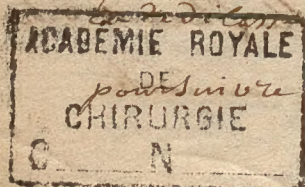 ACADEMIE ROYALE
DE
poursuivre
CHIRURGIE
C N